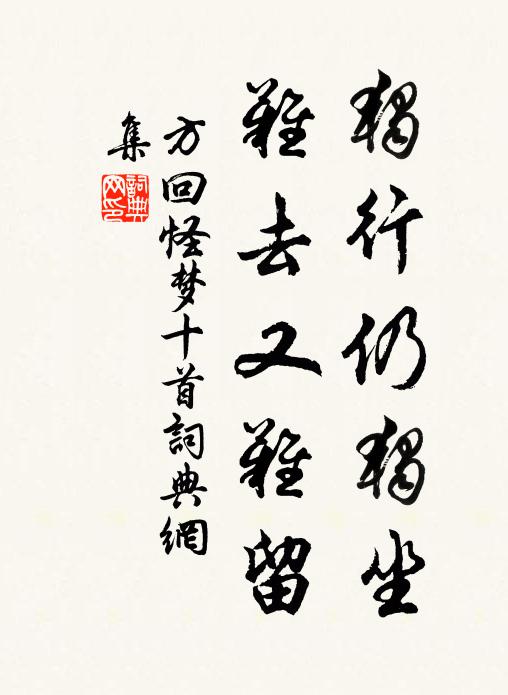 獨行仍獨坐
難去又難留
方回怪梦十首詞典網
集
詞典网印